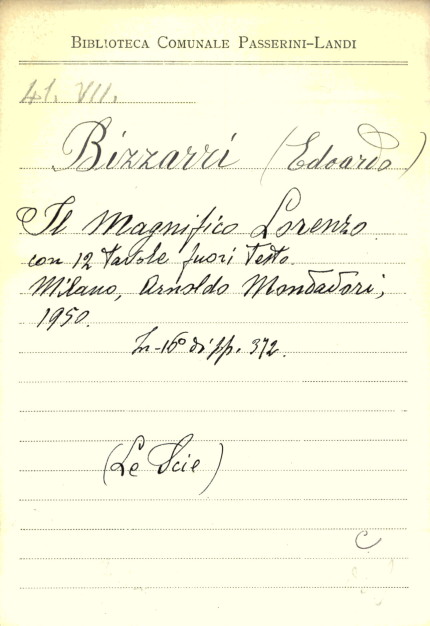 BIBLIOTECA COMUNALE PASSERINI-LANDI
41. VII.
Bizzarri (Edoardo)
Il Magnifico Lorenzo
con 12 tavole fuori testo.
Milano, Arnoldo Mondadori,
1950.
In-16° di pp. 372.
(Le Scie)
C